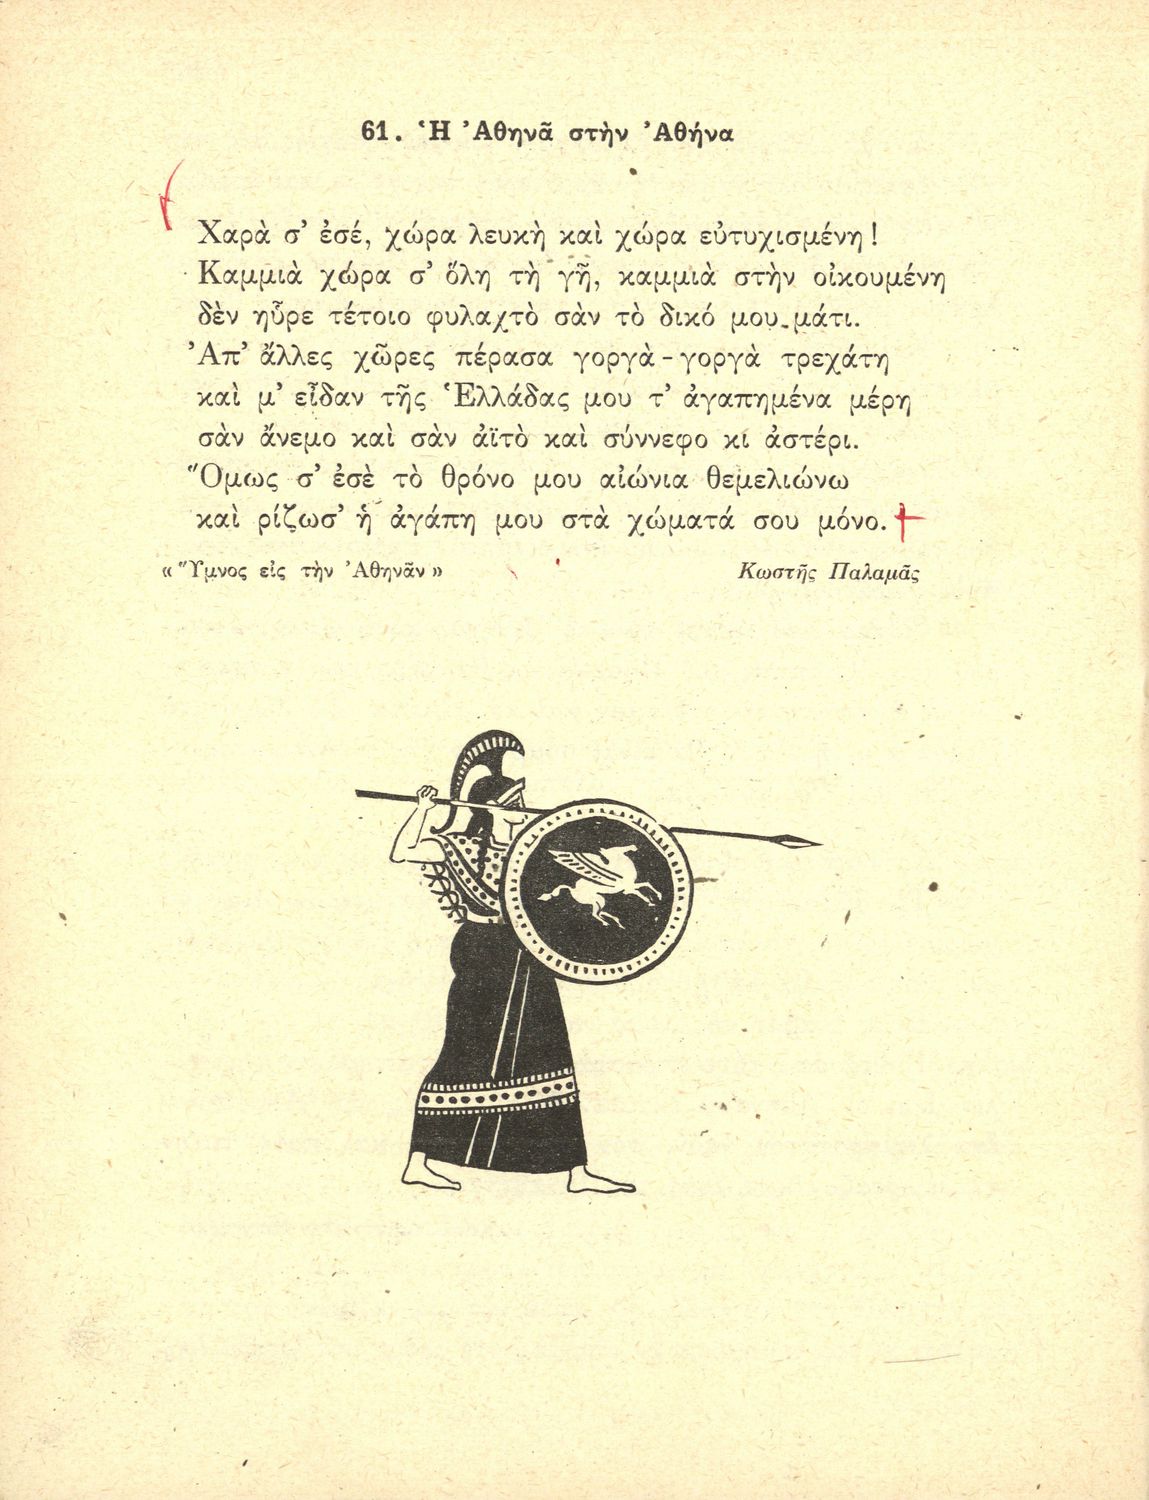 61. Ἡ Ἀθηνᾶ στὴν Ἀθήνα
Χαρὰ σ’ ἐσέ, χώρα λευκὴ καὶ χώρα εὐτυχισμένη!
Καμμιὰ χώρα σ’ ὅλη τὴ γῆ, καμμιὰ στὴν οἰκουμένη
δὲν ηὗρε τέτοιο φυλαχτὸ σὰν τὸ δικό μου μάτι.
Ἀπ’ ἄλλες χῶρες πέρασα γοργὰ-γοργὰ τρεχάτη
καὶ μ’ εἶδαν τῆς Ἑλλάδας μου τ’ ἀγαπημένα μέρη
σὰν ἄνεμο καὶ σὰν ἀϊτὸ καὶ σύννεφο κι ἀστέρι.
Ὅμως σ’ ἐσὲ τὸ θρόνο μου αἰώνια θεμελιώνω
καὶ ρίζωσ’ ἡ ἀγάπη μου στὰ χώματά σου μόνο.
« Ὕμνος εἰς τὴν Ἀθηνᾶν » Κωστῆς Παλαμᾶς